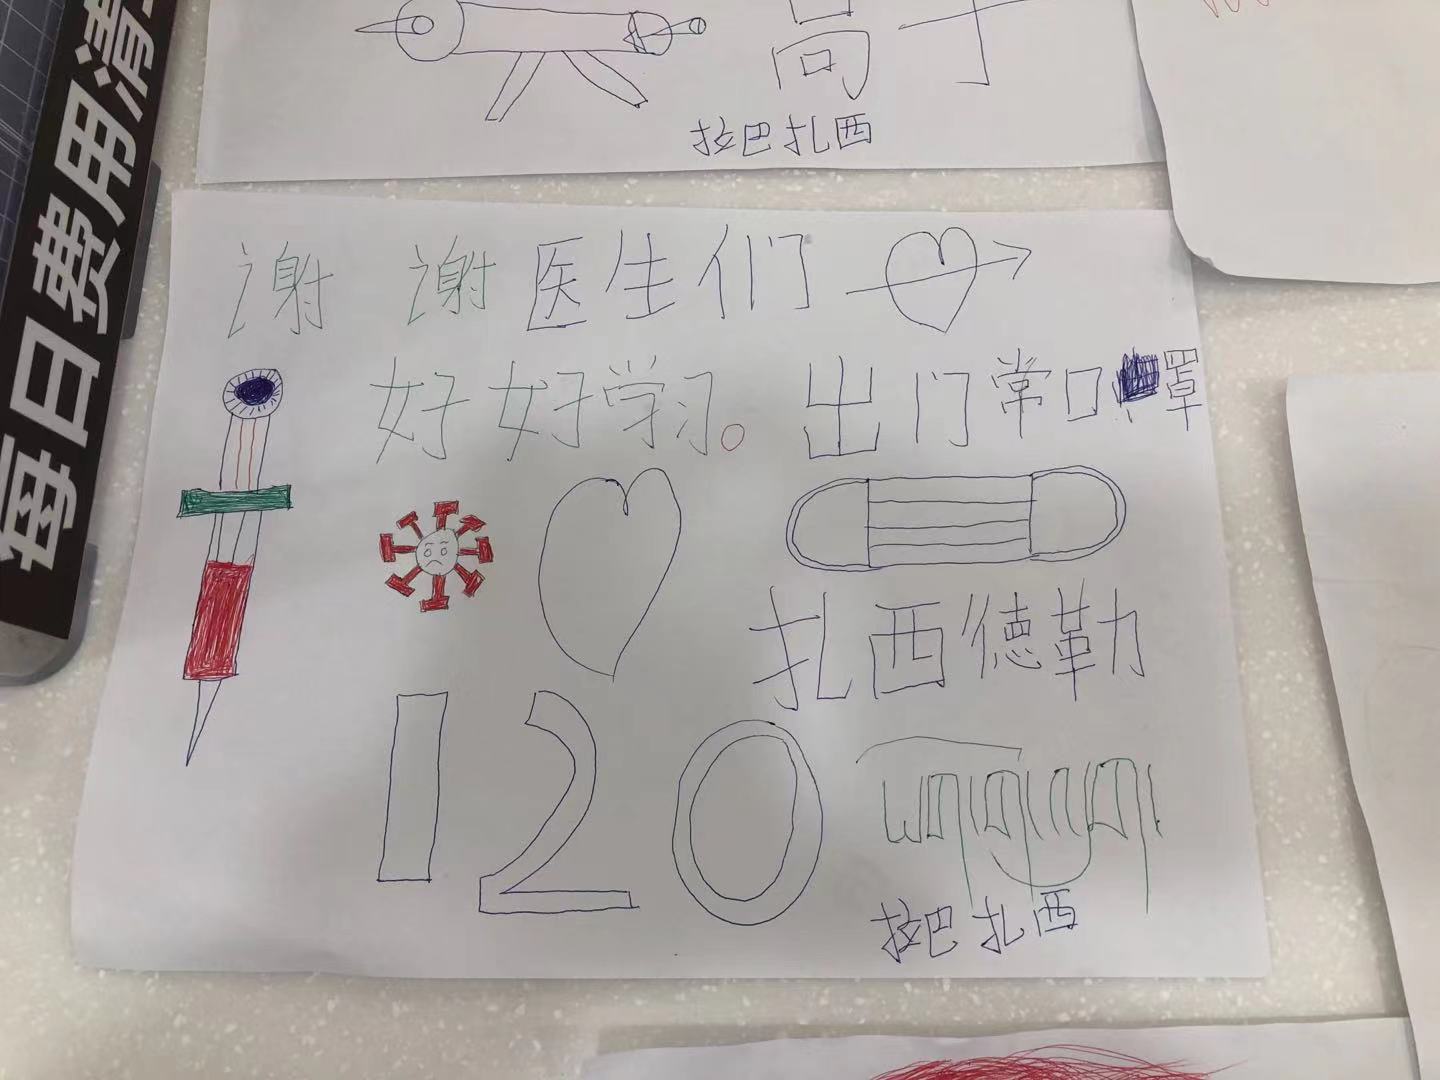 高于
拉巴扎西
每日费用清
谢谢医生们
好好学习。出门常口罩
扎西德勒
120
拉巴扎西